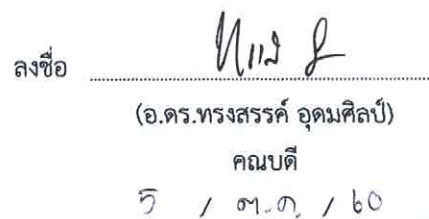 ลงชื่อ
(อ.ดร.ทรงสรรค์ อุดมศิลป์)
คณบดี
5 / ต.ค. / 60